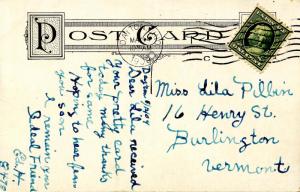 POST CARD
Dear Lila received
your pretty card
today many thanks
for same
Hoping to hear from
you soon
I remain your
Ideal Friend
Miss Lila Pillbin
16 Henry St.
Burlington
Vermont